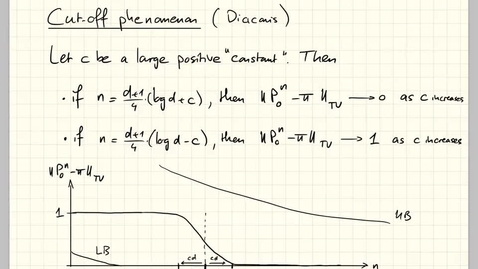 Cut-off phenomenon (Diaconis)
Let c be a large positive "constant". Then
• if n = d+1/4 · (log d + c), then ‖P₀ⁿ − π‖_TV → 0 as c increases
• if n = d+1/4 · (log d − c), then ‖P₀ⁿ − π‖_TV → 1 as c increases
‖P₀ⁿ − π‖_TV
1
UB
LB
cd cd
n